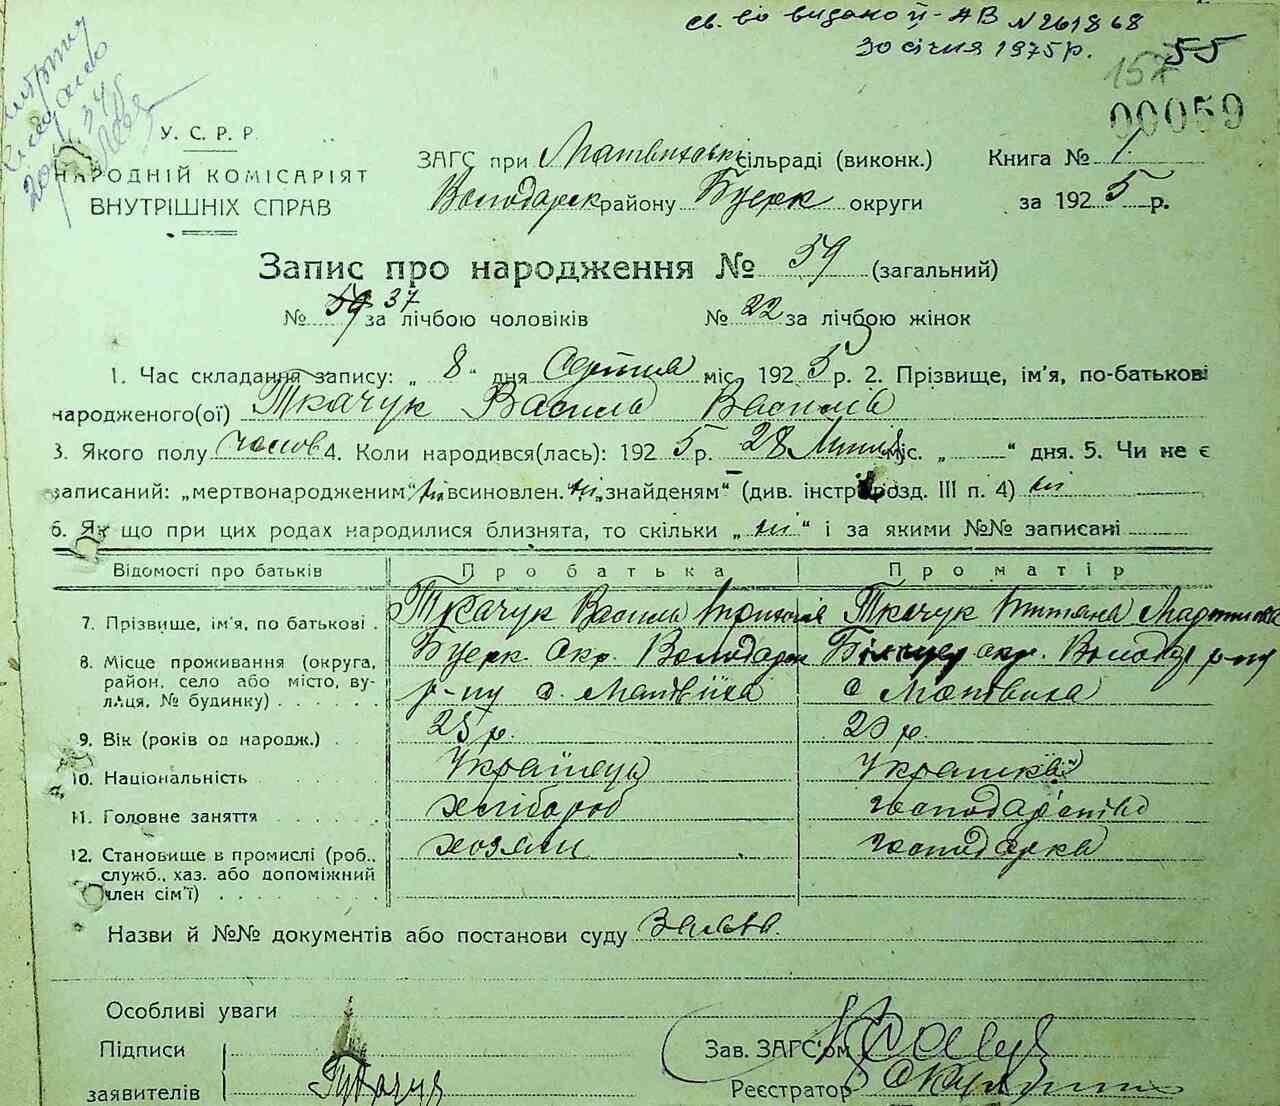 св. во видано ІІ-АВ № 261868
30 січня 1975 р.
55
157
00059
У. С. Р. Р.
НАРОДНІЙ КОМІСАРІЯТ
ВНУТРІШНІХ СПРАВ
ЗАГС при Матвіхівській сільраді (виконк.) Книга № 1
Володарск району Б церк округи за 1925 р.
Запис про народження № 59 (загальний)
№ 59 37 за лічбою чоловіків № 22 за лічбою жінок
1. Час складання запису: „ 8 “ дня Серпня міс. 1925 р. 2. Прізвище, ім'я, по-батькові
народженого(ої) Ткачук Василь Василів
3. Якого полу чолов 4. Коли народився(лась): 1925 р. 28 Липня міс. „ “ дня. 5. Чи не є
записаний: „мертвонародженим“ ні всиновлен. ні „знайденям“ (див. інстр. розд. III п. 4) ні
6. Як що при цих родах народилися близнята, то скільки „ ні “ і за якими №№ записані
Відомості про батьків Про батька Про матір
7. Прізвище, ім'я, по батькові . Ткачук Василь Ткачук Титяна
8. Місце проживання (округа, Б церк. окр. Володарск окр. Володар р-ну
район, село або місто, ву- р-ну с. Матвіїха с Матвиха
лиця, № будинку)
9. Вік (років од народж.) 25 р. 23 р.
10. Національність Українець Украінка
11. Головне заняття хлібороб господарство
12. Становище в промислі (роб., хозяин господарка
служб., хаз. або допоміжний
член сім'ї)
Назви й №№ документів або постанови суду Заява
Особливі уваги
Підписи Зав. ЗАГС'ом
заявителів Ткачук Реєстратор